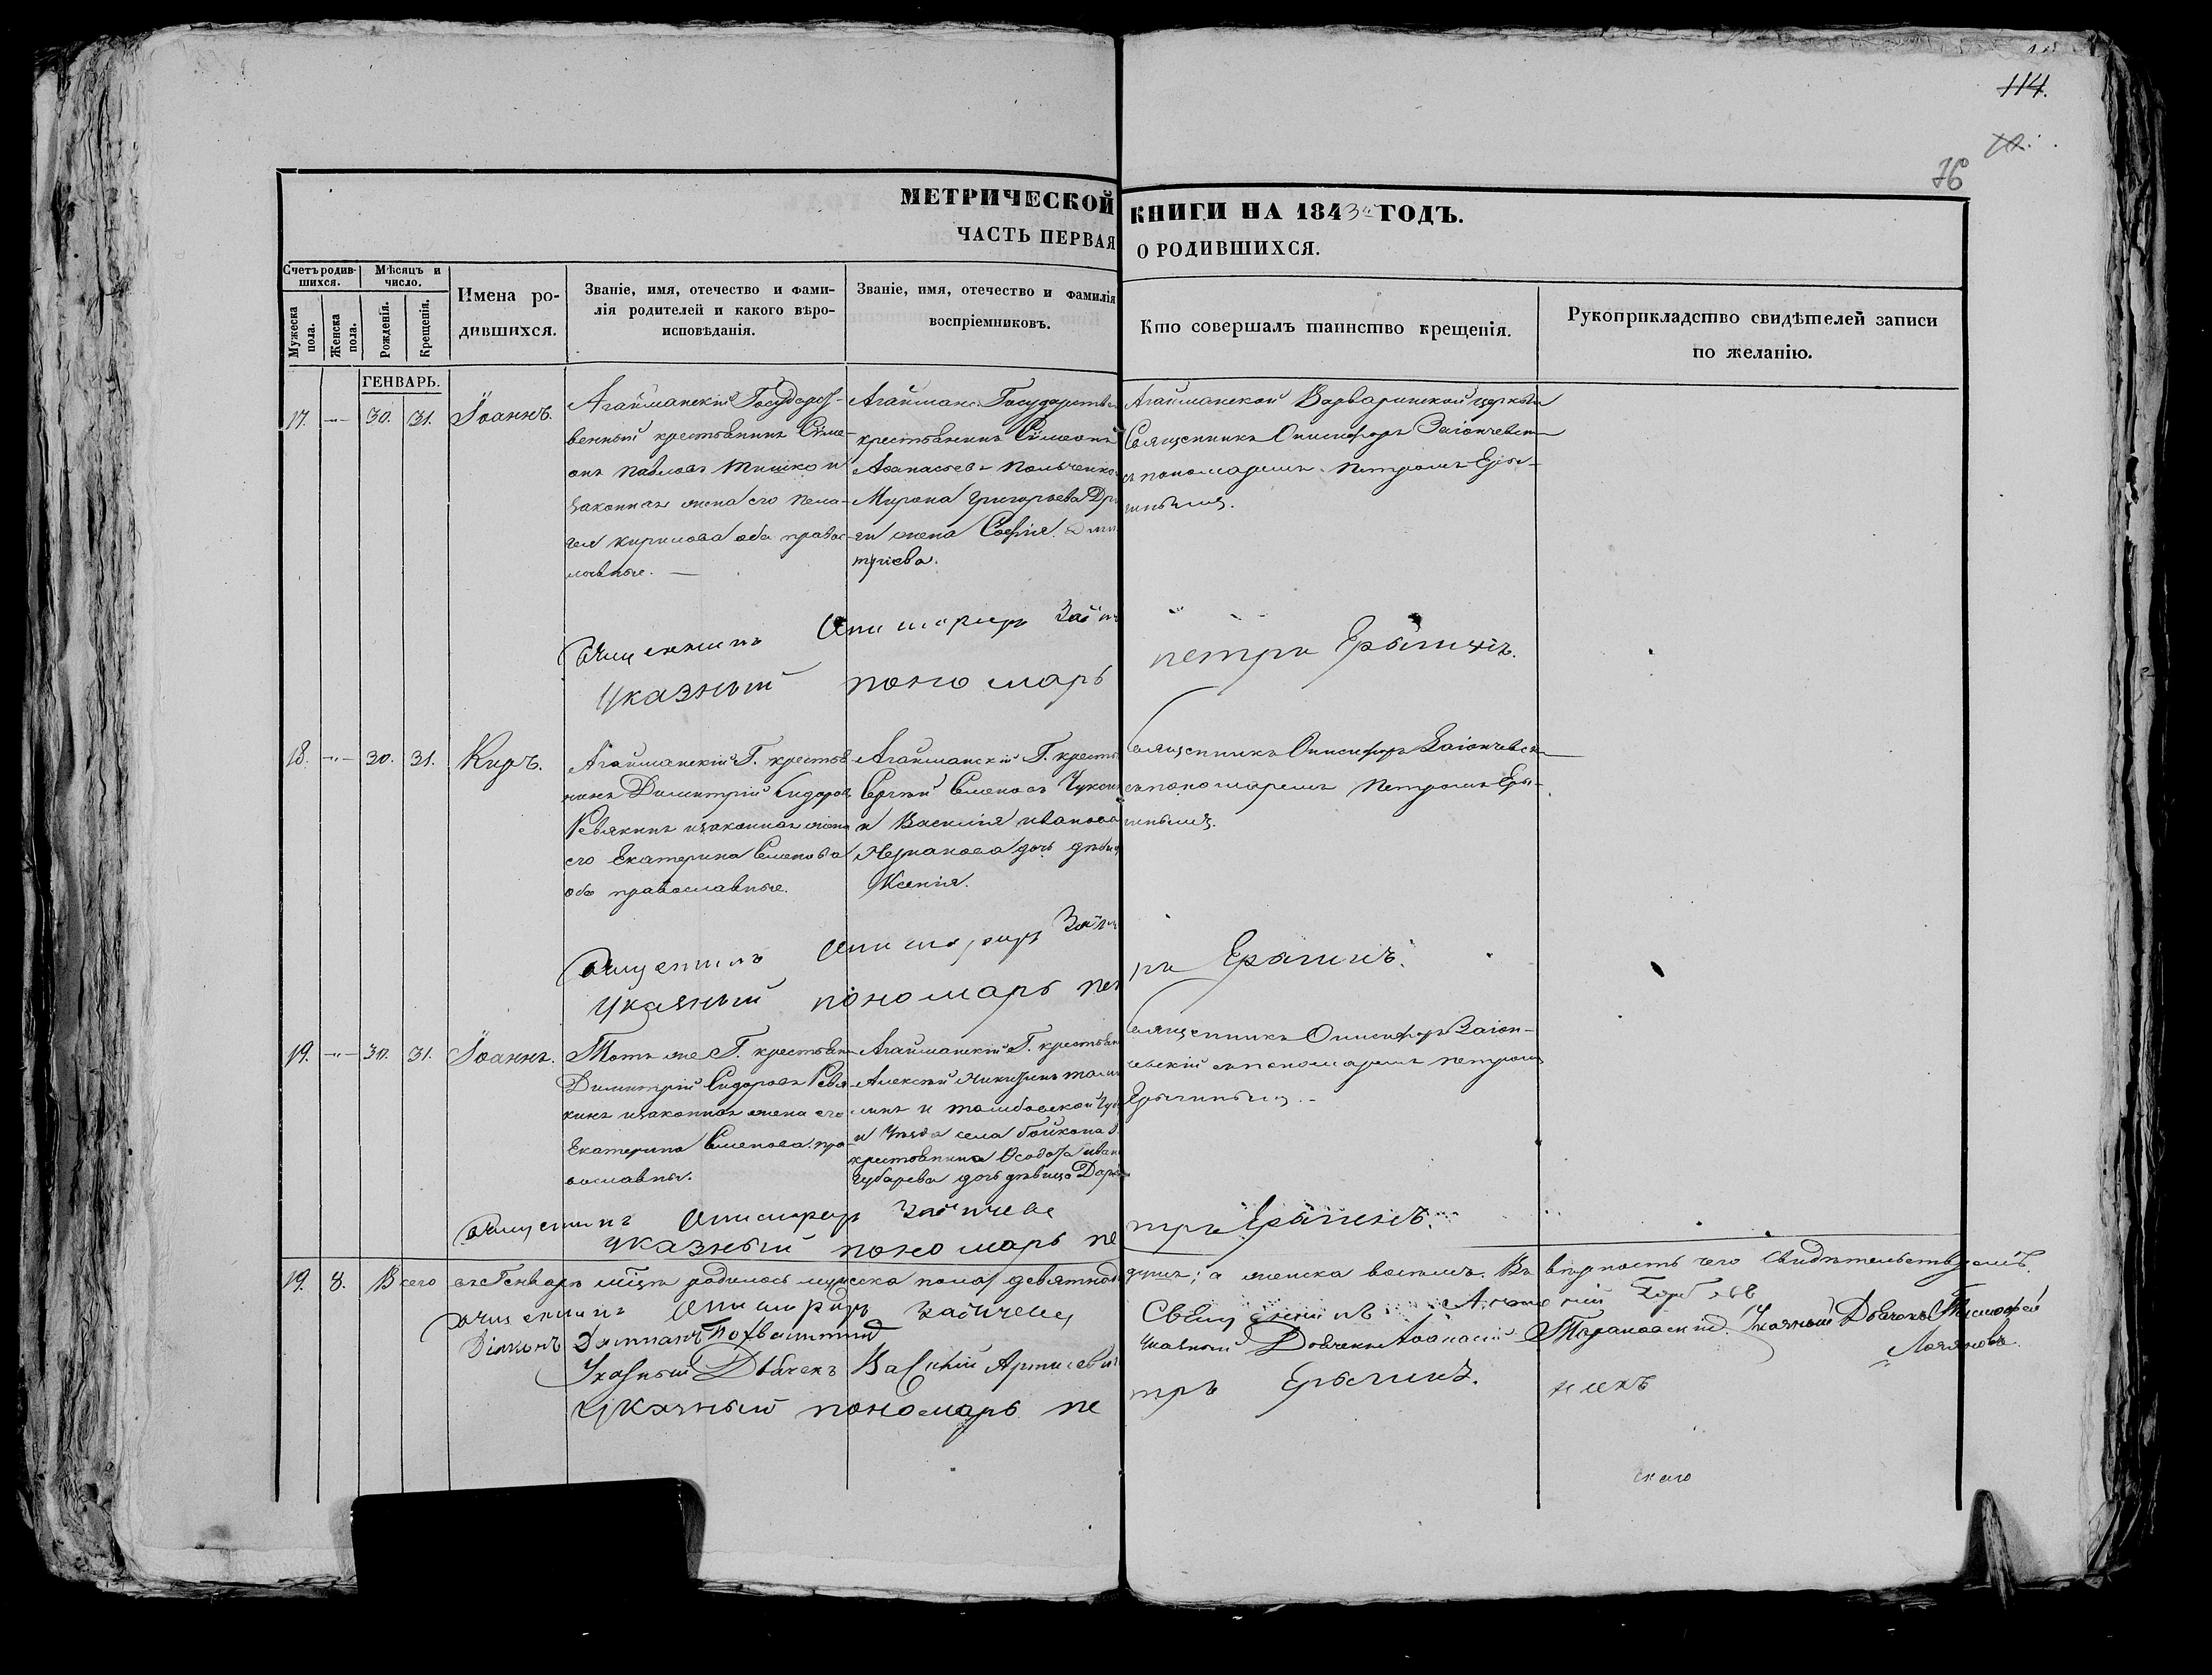 114.
10.
76
МЕТРИЧЕСКОЙ КНИГИ НА 1843й ГОДЪ.
ЧАСТЬ ПЕРВАЯ О РОДИВШИХСЯ.
Счетъ родившихся.
Мужеска пола.
Женска пола.
Мѣсяцъ и число.
Рожденія.
Крещенія.
Имена родившихся.
Званіе, имя, отечество и фамилія родителей и какого вѣроисповѣданія.
Званіе, имя, отечество и фамилія воспріемниковъ.
Кто совершалъ таинство крещенія.
Рукоприкладство свидѣтелей записи по желанію.
ГЕНВАРЬ.
17. -"- 30. 31. Іоаннъ.
Агайманскій Государст-
венный крестьянинъ Сѵме-
онъ Павловъ Тишко и
законная жена его Пела-
гея Кирилова оба правос-
лавные. —
Агайманс. Государствен
крестьянинъ Сѵмеонъ
Афанасьевъ Польченко
Мирона Григорьева Др
ги жена Софія Дми
тріева.
Агайманской Варваринской церкви
Священникъ Онисифоръ Заіончевск
съ пономаремъ Петромъ Еры-
гинымъ.
Священникъ Онисифоръ Заіон
Указный пономарь Петръ Ерыгинъ.
18. -"- 30. 31. Киръ.
Агайманскій Г. крестья
нинъ Димитрій Сидоровъ
Ревякинъ и законная жена
его Екатерина Семенова
оба православные.
Агайманскій Г. кресть
Сергѣй Семеновъ
и Василія Иванова
дочь дѣвица
Ксенія.
Священникъ Онисифоръ Заіончевск
съ пономаремъ Петромъ Еры-
гинымъ.
Священникъ Онисифоръ Заіон
Указный пономарь Петръ Ерыгинъ.
19. -"- 30. 31. Іоаннъ.
Тотъ же Г. крестьян
Димитрій Сидоровъ Ревя-
кинъ и законная жена его
Екатерина Семенова пра-
вославны.
Агайманскій Г. крестьян
Алексѣй Никитинъ
и Тамбовской Губ
и Уѣзда села
крестьянина Ѳедота Иван
Губарева дочь дѣвица Дар
Священникъ Онисифоръ Заіон-
чевскій съ пономаремъ Петромъ
Ерыгинымъ. -
Священникъ Онисифоръ Заіончевс
Указный пономарь Петръ Ерыгинъ.
19. 8. Всего въ Генварѣ мцѣ родилось мужеска пола девятнад душъ; а женска восемь. Въ вѣрность чего свидѣтельствуемъ.
Священникъ Онисифоръ Заіончевс
Священникъ
Діяконъ
Указный Дьячекъ Афанасій Тарановскій. Указный Дьячокъ Тимофей
Указный Дьячекъ Василій
Указный пономарь Петръ Ерыгинъ.